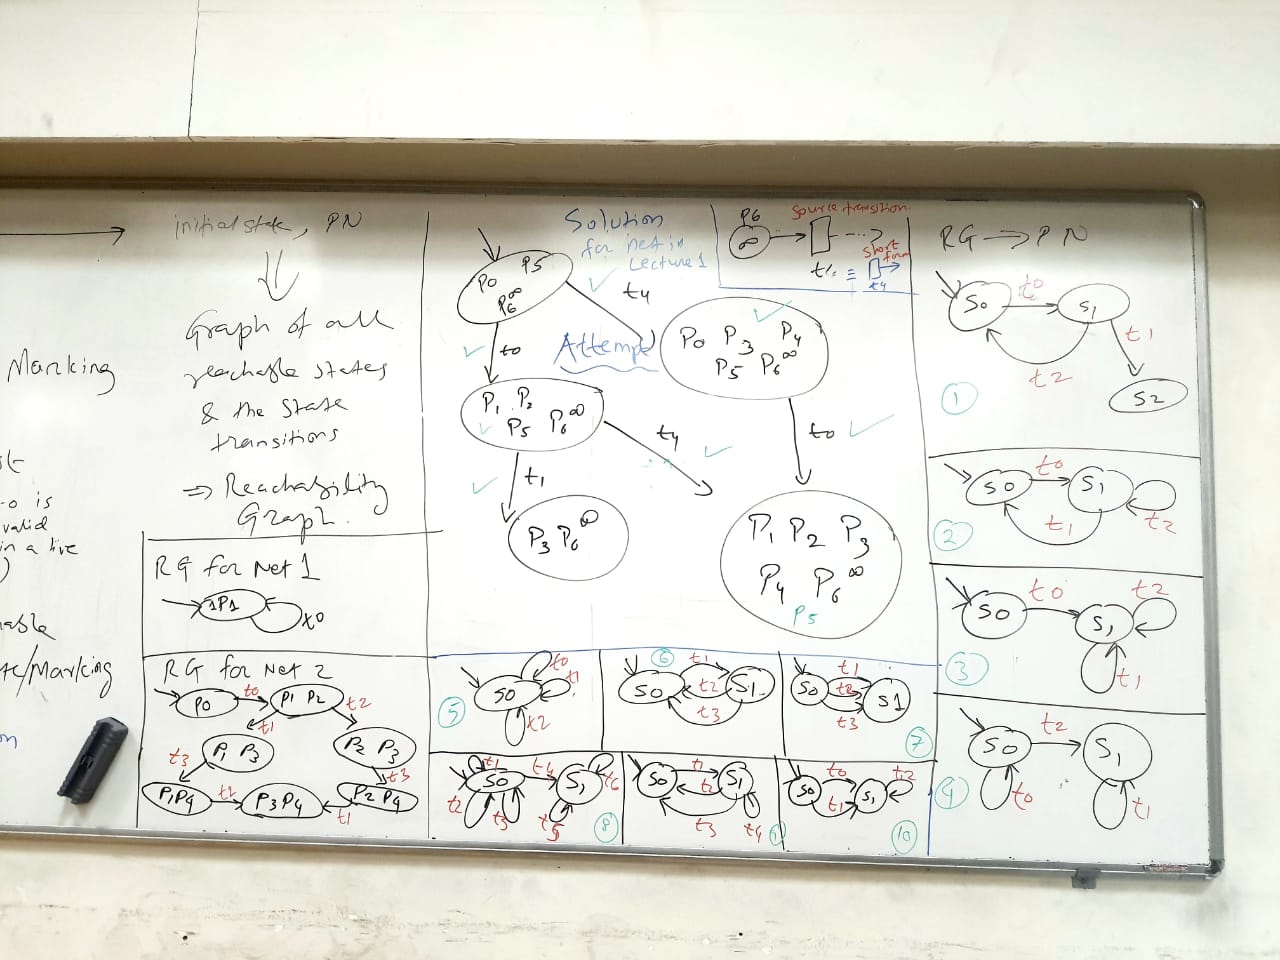 initial state, PN
Graph of all
reachable states
& the state
transitions
⇒ Reachability
Graph.
Marking
o is
valid
in a live
)
able
te/Marking
on
RG for Net 1
1P1
t0
RG for Net 2
P0
t0
P1 P2
t2
t1
P1 P3
P2 P3
t3
t3
P1P4
t2
P3P4
P2 P4
t1
Solution
for net in
Lecture 1
P0 P5
P6∞
t4
t0
Attempt
P0 P3 P4
P5 P6∞
P1 P2
P5 P6∞
t4
t0
t1
P3 P6∞
P1 P2 P3
P4 P6∞
P5
P6
∞
source transition.
t4
≡
short
form
t4
RG → PN
S0
t0
S1
t1
t2
S2
1
S0
t0
S1
t1
t2
2
S0
t0
S1
t2
t1
3
S0
t2
S1
t0
t1
4
5
S0
t0
t1
t2
6
S0
t1
S1
t2
t3
S0
t1
t2
t3
S1
7
t1
S0
t4
S1
t6
t2
t3
t5
8
S0
t1
S1
t2
t3
t4
S0
t0
t1
S1
t2
10